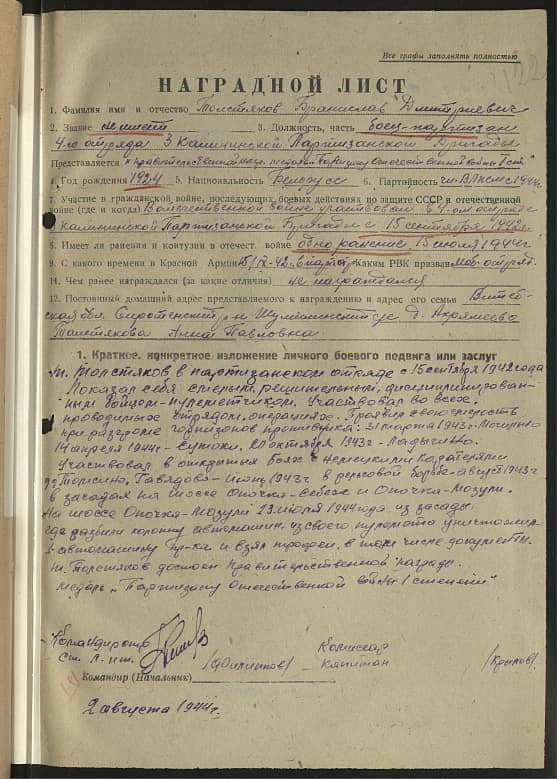 Все графы заполнять полностью
НАГРАДНОЙ ЛИСТ
1. Фамилия имя и отчество Толстяков Бранислав Дмитриевич
2. Звание 3. Должность, часть боец-партизан
4го отряда 3 Калининской Партизанской Бригады
Представляется к правительственной наг. медали "Партизану Отечественной войны I ст"
4. Год рождения 1924 5. Национальность Белорусс 6. Партийность чл. ВЛКСМ с 1944г
7. Участие в гражданской войне, последующих боевых действиях по защите СССР и отечественной
войне (где и когда) В отечественной войне участвовал в 4-ом отряде
Калининской Партизанской Бригады с 15 сентября 1942г
8. Имеет ли ранения и контузии в отечест. войне одно ранение, 15 июля 1944г
9. С какого времени в Красной Армии 15/IX-42г. в парт. отр. Каким РВК призван моб. отряд.
11. Чем ранее награждался (за какие отличия) не награждался
12. Постоянный домашний адрес представляемого к награждению и адрес его семьи Витеб-
ская обл. Сиротенский р-н д.
Толстякова Анна Павловна
1. Краткое, конкретное изложение личного боевого подвига или заслуг
т. Толстяков в партизанском отряде с 15 сентября 1942 года
Показал себя смелым, решительным, дисциплинирован-
ным бойцом-пулеметчиком. Участвовал во всех
проводимых отрядом операциях. Проявил свою смелость
при разгроме гарнизонов противника: 31 марта 1943г-
14 апреля 1944г- октября 1943г-
Участвовал в открытых боях с немецкими карателями
июнь 1943г в рельсовой борьбе-август 1943г
в засадах на шоссе Опочка-Себеж и Опочка-Мозули.
На шоссе Опочка-Мозули 13 июля 1944 года из засады
где разбили колонну автомашин, из своего пулемета уничтожил
1-автомашину пр-ка и взял трофеи, в том числе документы.
т. Толстяков достоин Правительственной награды
медаль "Партизану Отечественной войны I степени"
Командир отр
Ст. л-нт. (Филиппов)
Комиссар
Капитан (Крылов)
Командир (Начальник)
2 августа 1944г.